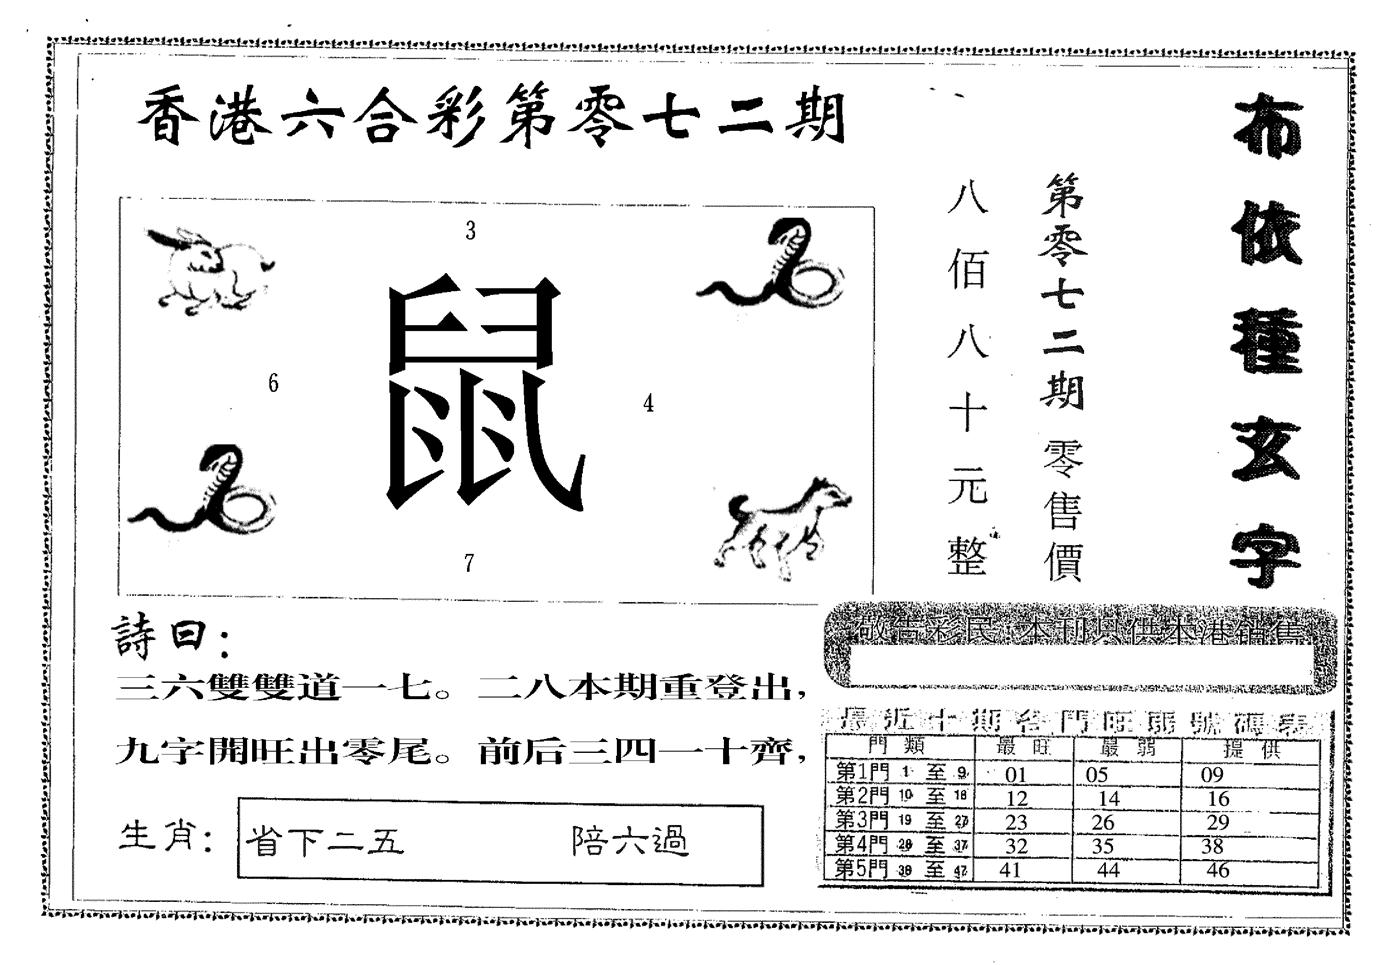 香港六合彩第零七二期
布依種玄字
第零七二期零售價
八佰八十元整
3
鼠
6
4
7
詩曰：
三六雙雙道一七。二八本期重登出，
九字開旺出零尾。前后三四一十齊，
生肖：
省下二五 陪六過
敬告彩民：本刊只供本港銷售
最近十期各門旺弱號碼表
門類 最旺 最弱 提供
第1門 1 至 9 01 05 09
第2門 10 至 18 12 14 16
第3門 19 至 27 23 26 29
第4門 28 至 37 32 35 38
第5門 38 至 47 41 44 46